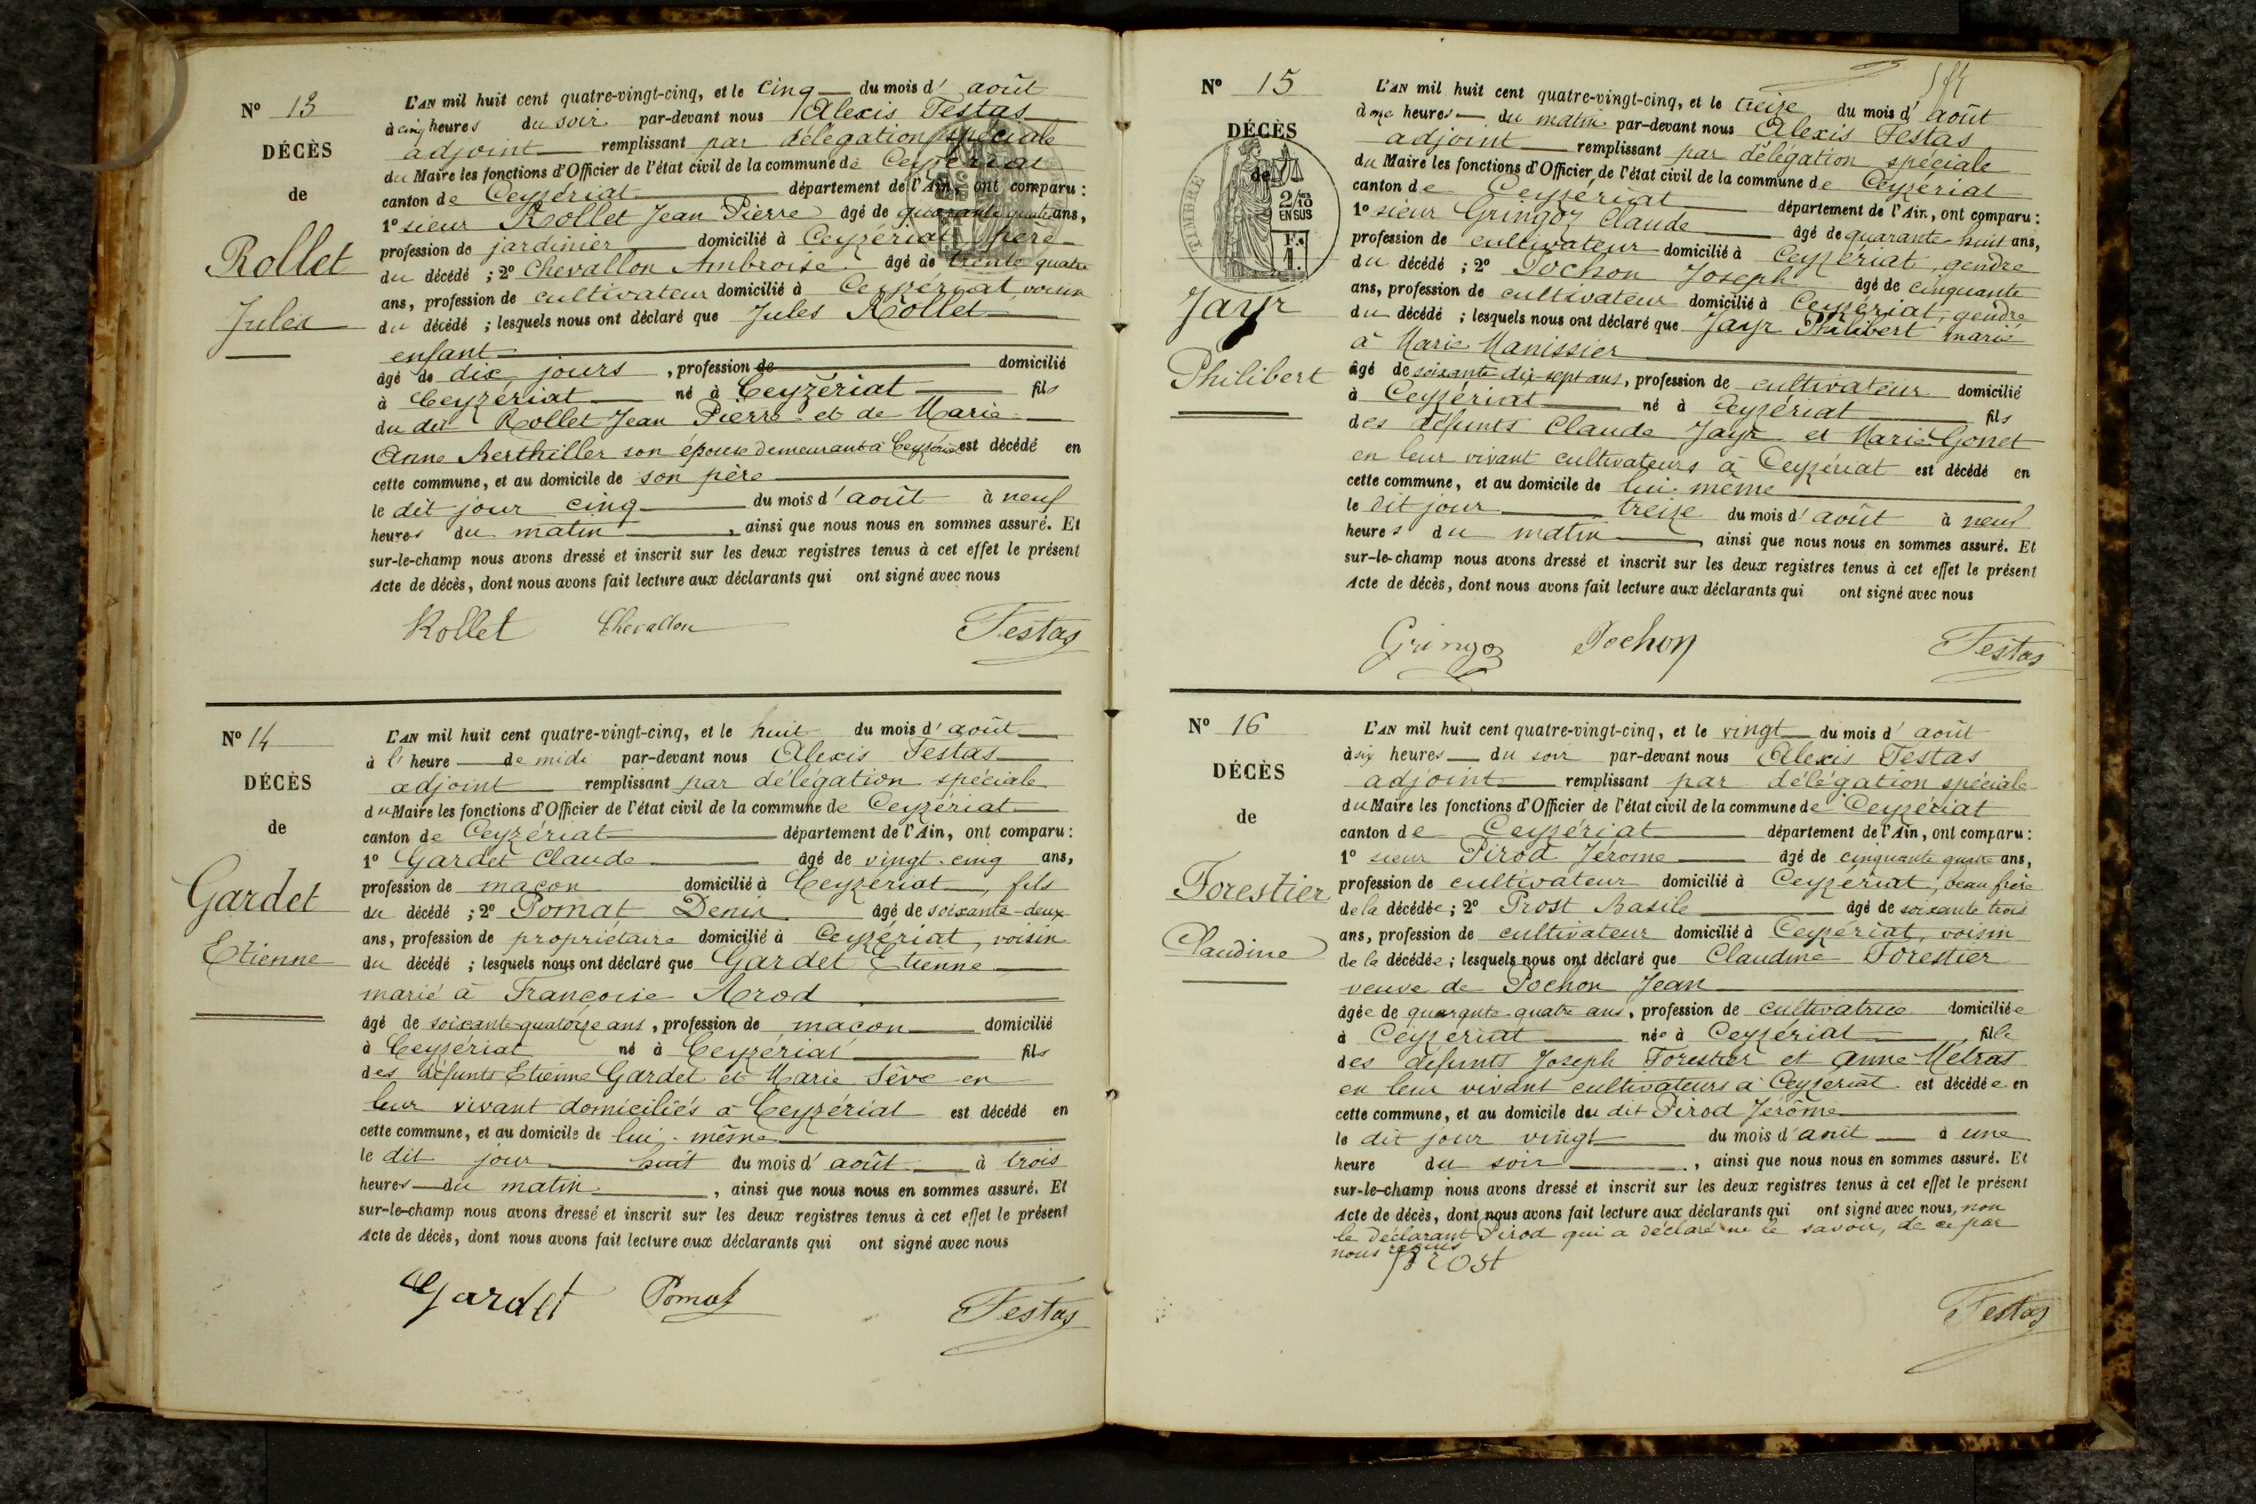 Nº 13
DÉCÈS
de
Rollet
Jules
L'AN mil huit cent quatre-vingt-cinq, et le cinq du mois d'août
à cinq heures du soir par-devant nous Alexis Festas
adjoint remplissant par délégation spéciale
du Maire les fonctions d'Officier de l'état civil de la commune de Ceyzériat
canton de Ceyzériat département de l'Ain, ont comparu :
1º sieur Rollet Jean Pierre âgé de quarante quatre ans,
profession de jardinier domicilié à Ceyzériat père
du décédé ; 2º Chevallon Ambroise âgé de trente quatre
ans, profession de cultivateur domicilié à Ceyzériat voisin
du décédé ; lesquels nous ont déclaré que Jules Rollet
enfant
âgé de dix jours, profession de domicilié
à Ceyzériat né à Ceyzériat fils
du dit Rollet Jean Pierre et de Marie
Anne Berthiller son épouse demeurant à Ceyzériat est décédé en
cette commune, et au domicile de son père
le dit jour cinq du mois d'août à neuf
heures du matin, ainsi que nous nous en sommes assuré. Et
sur-le-champ nous avons dressé et inscrit sur les deux registres tenus à cet effet le présent
Acte de décès, dont nous avons fait lecture aux déclarants qui ont signé avec nous
Rollet Chevallon Festas
Nº 14
DÉCÈS
de
Gardet
Etienne
L'AN mil huit cent quatre-vingt-cinq, et le huit du mois d'août
à l'heure de midi par-devant nous Alexis Festas
adjoint remplissant par délégation spéciale
du Maire les fonctions d'Officier de l'état civil de la commune de Ceyzériat
canton de Ceyzériat département de l'Ain, ont comparu :
1º Gardet Claude âgé de vingt-cinq ans,
profession de maçon domicilié à Ceyzériat, fils
du décédé ; 2º Pomat Denis âgé de soixante-deux
ans, profession de propriétaire domicilié à Ceyzériat, voisin
du décédé ; lesquels nous ont déclaré que Gardet Etienne
marié à Françoise Arod
âgé de soixante-quatorze ans, profession de maçon domicilié
à Ceyzériat né à Ceyzériat fils
des défunts Etienne Gardet et Marie Sève en
leur vivant domiciliés à Ceyzériat est décédé en
cette commune, et au domicile de lui-même
le dit jour huit du mois d'août à trois
heures du matin, ainsi que nous nous en sommes assuré. Et
sur-le-champ nous avons dressé et inscrit sur les deux registres tenus à cet effet le présent
Acte de décès, dont nous avons fait lecture aux déclarants qui ont signé avec nous
Gardet Pomat Festas
Nº 15
DÉCÈS
de
TIMBRE
2/10
EN SUS
Jayr
Philibert
L'AN mil huit cent quatre-vingt-cinq, et le treize du mois d'août
à onze heures du matin par-devant nous Alexis Festas
adjoint remplissant par délégation spéciale
du Maire les fonctions d'Officier de l'état civil de la commune de Ceyzériat
canton de Ceyzériat département de l'Ain, ont comparu :
1º sieur Gringoz Claude âgé de quarante-huit ans,
profession de cultivateur domicilié à Ceyzériat, gendre
du décédé ; 2º Pochon Joseph âgé de cinquante
ans, profession de cultivateur domicilié à Ceyzériat, gendre
du décédé ; lesquels nous ont déclaré que Jayr Philibert marié
à Marie Manissier
âgé de soixante-dix-sept ans, profession de cultivateur domicilié
à Ceyzériat né à Ceyzériat fils
des défunts Claude Jayr et Marie Gonet
en leur vivant cultivateurs à Ceyzériat est décédé en
cette commune, et au domicile de lui-même
le dit jour treize du mois d'août à neuf
heures du matin, ainsi que nous nous en sommes assuré. Et
sur-le-champ nous avons dressé et inscrit sur les deux registres tenus à cet effet le présent
Acte de décès, dont nous avons fait lecture aux déclarants qui ont signé avec nous
Gringoz Pochon Festas
Nº 16
DÉCÈS
de
Forestier
Claudine
L'AN mil huit cent quatre-vingt-cinq, et le vingt du mois d'août
à six heures du soir par-devant nous Alexis Festas
adjoint remplissant par délégation spéciale
du Maire les fonctions d'Officier de l'état civil de la commune de Ceyzériat
canton de Ceyzériat département de l'Ain, ont comparu :
1º sieur Pirod Jérome âgé de cinquante quatre ans,
profession de cultivateur domicilié à Ceyzériat, beau frère
de la décédée ; 2º Prost Basile âgé de soixante trois
ans, profession de cultivateur domicilié à Ceyzériat, voisin
de la décédée ; lesquels nous ont déclaré que Claudine Forestier
veuve de Pochon Jean
âgée de quarante-quatre ans, profession de cultivatrice domiciliée
à Ceyzériat née à Ceyzériat fille
des défunts Joseph Forestier et Anne Métras
en leur vivant cultivateurs à Ceyzériat est décédée en
cette commune, et au domicile du dit Pirod Jérôme
le dit jour vingt du mois d'août à une
heure du soir, ainsi que nous nous en sommes assuré. Et
sur-le-champ nous avons dressé et inscrit sur les deux registres tenus à cet effet le présent
Acte de décès, dont nous avons fait lecture aux déclarants qui ont signé avec nous, non
le déclarant Pirod qui a déclaré ne le savoir, de ce par
nous requis
Prost
Festas